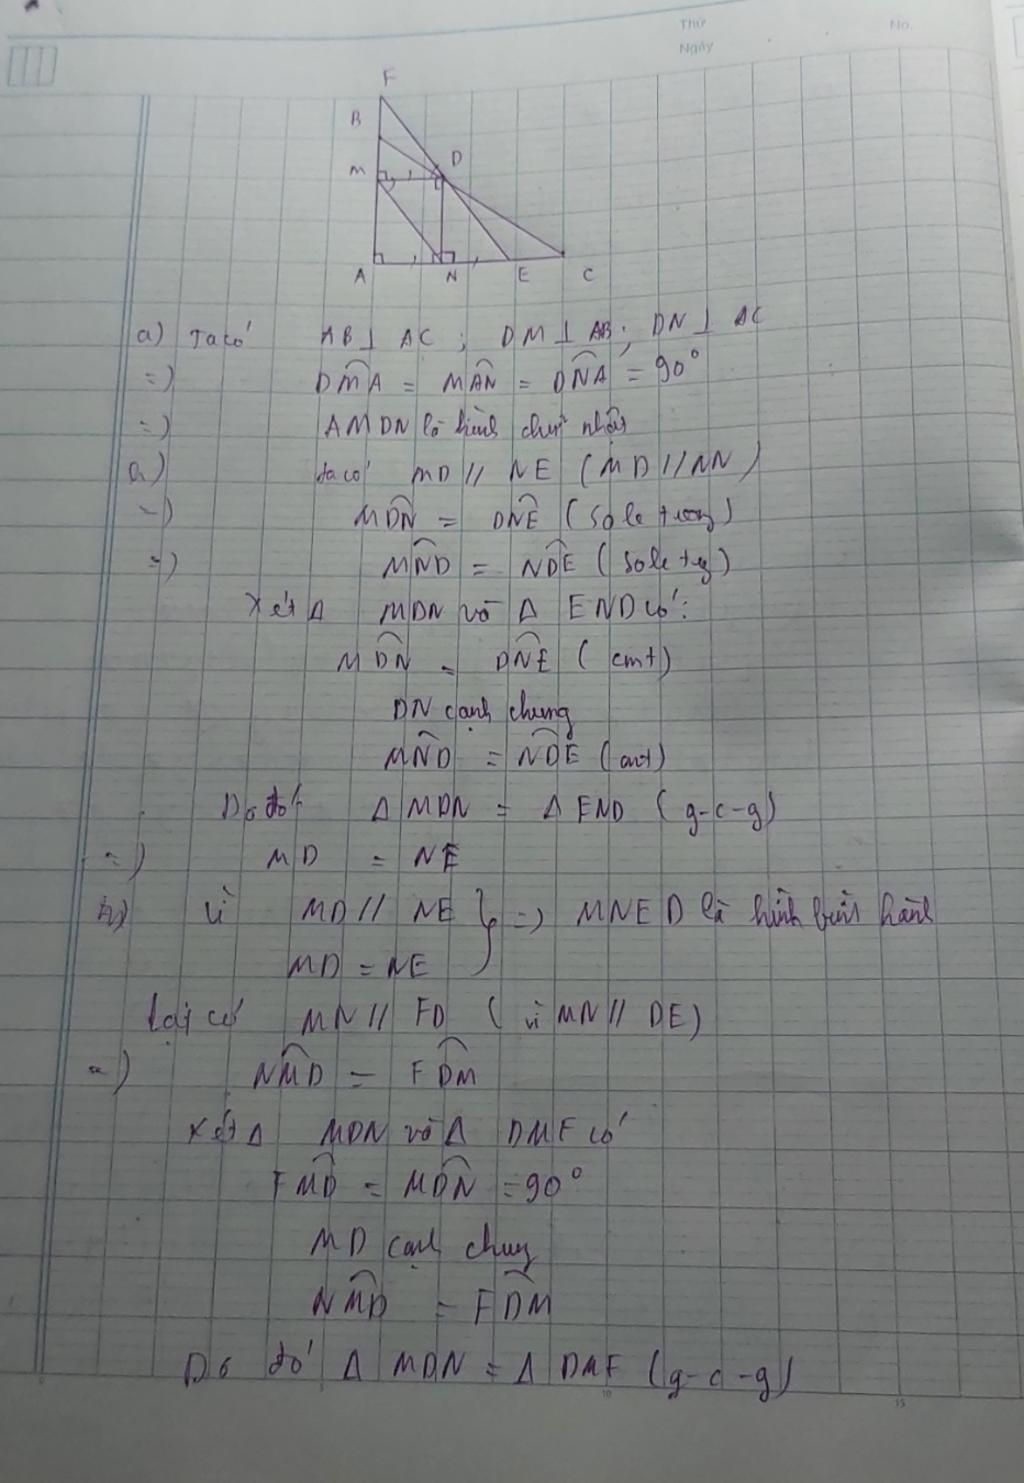 Thứ
No.
Ngày
F
B
D
M
A
N
E
C
a) Ta có AB ⊥ AC ; DM ⊥ AB ; DN ⊥ AC
=) DMA = MAN = DNA = 90°
=) AMDN là hình chữ nhật
a) ta có MD // NE (MD // AN)
=) MDN = DNE (sole trong)
=) MND = NDE (sole tg)
Xét Δ MDN và Δ END có:
MDN = DNE (cmt)
DN cạnh chung
MND = NDE (cmt)
Do đó Δ MDN = Δ END (g-c-g)
=) MD = NE
Vì MD // NE } =) MNED là hình bình hành
MD = NE
Lại có MN // FD (vì MN // DE)
=) NMD = FDM
Xét Δ MDN và Δ DMF có
FMD = MDN = 90°
MD cạnh chung
NMD = FDM
Do đó Δ MDN = Δ DMF (g-c-g)
10
15